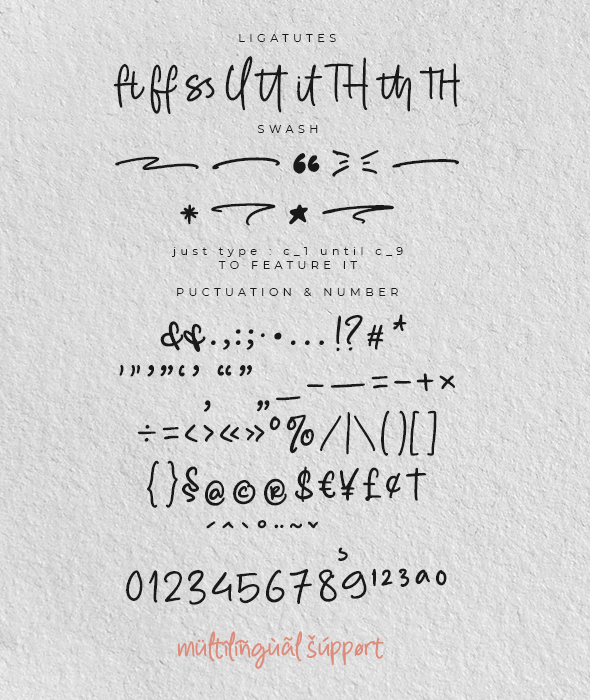 LIGATUTES
ft ff ss Cl tt it TH th TH
SWASH
“
* ★
just type : c_1 until c_9
TO FEATURE IT
PUCTUATION & NUMBER
&&.,:;·•...!?#*
'"’”‘’ “”
‚ „_–—=-+×
÷=<>«»°%/|\()[]
{}§@©®$€¥£¢†
´^`°¨~ˇ
0123456789¹²³ªº
mültilîngùãl šúppørt